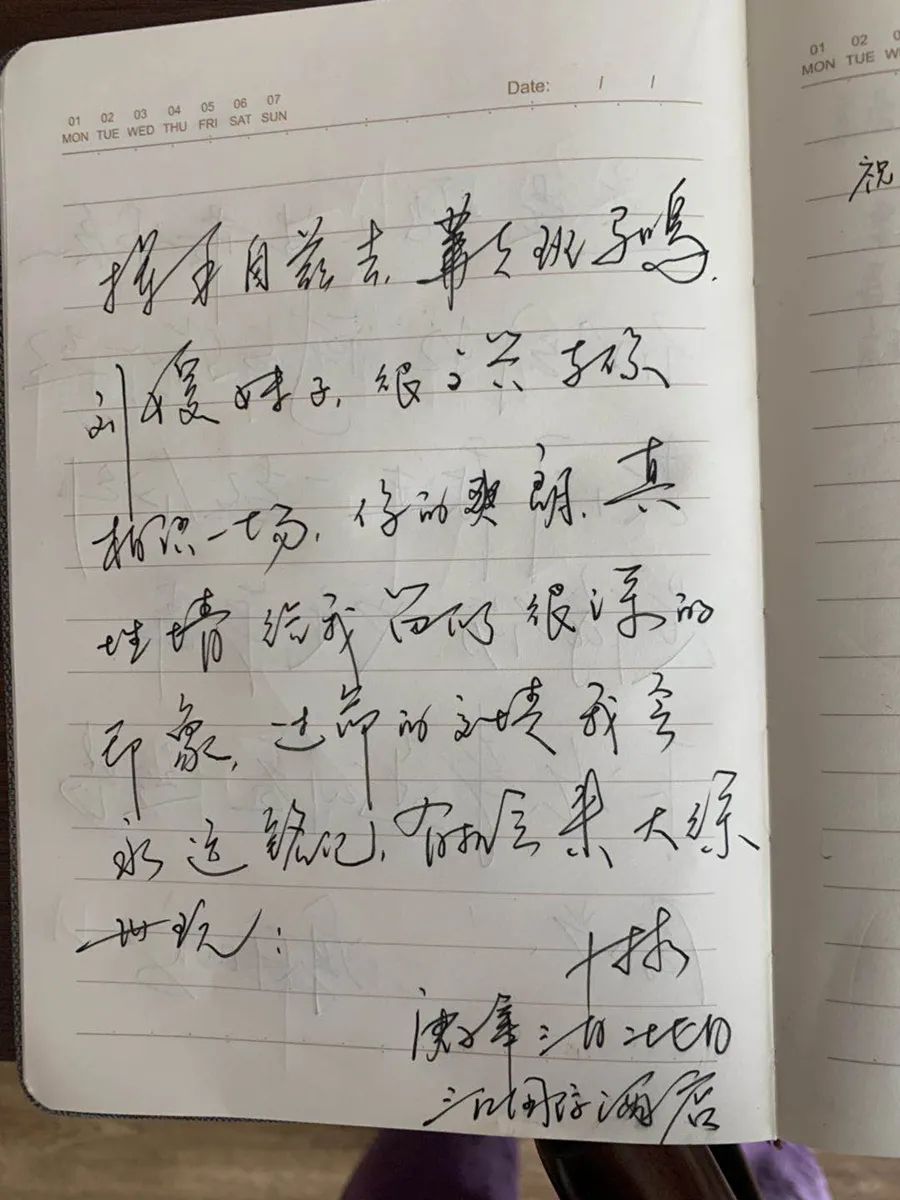 01 02 03 04 05 06 07
MON TUE WED THU FRI SAT SUN
Date: / /
挥手自兹去,萧萧班马鸣.
刘媛妹子,很高兴与你
相识一场,你的爽朗、真
性情给我留的很深的
印象,过节的友情我会
永远铭记,有机会来大缘
世玩:
庚子年三月二十七日
三江国际酒店
01 02
MON TUE
祝